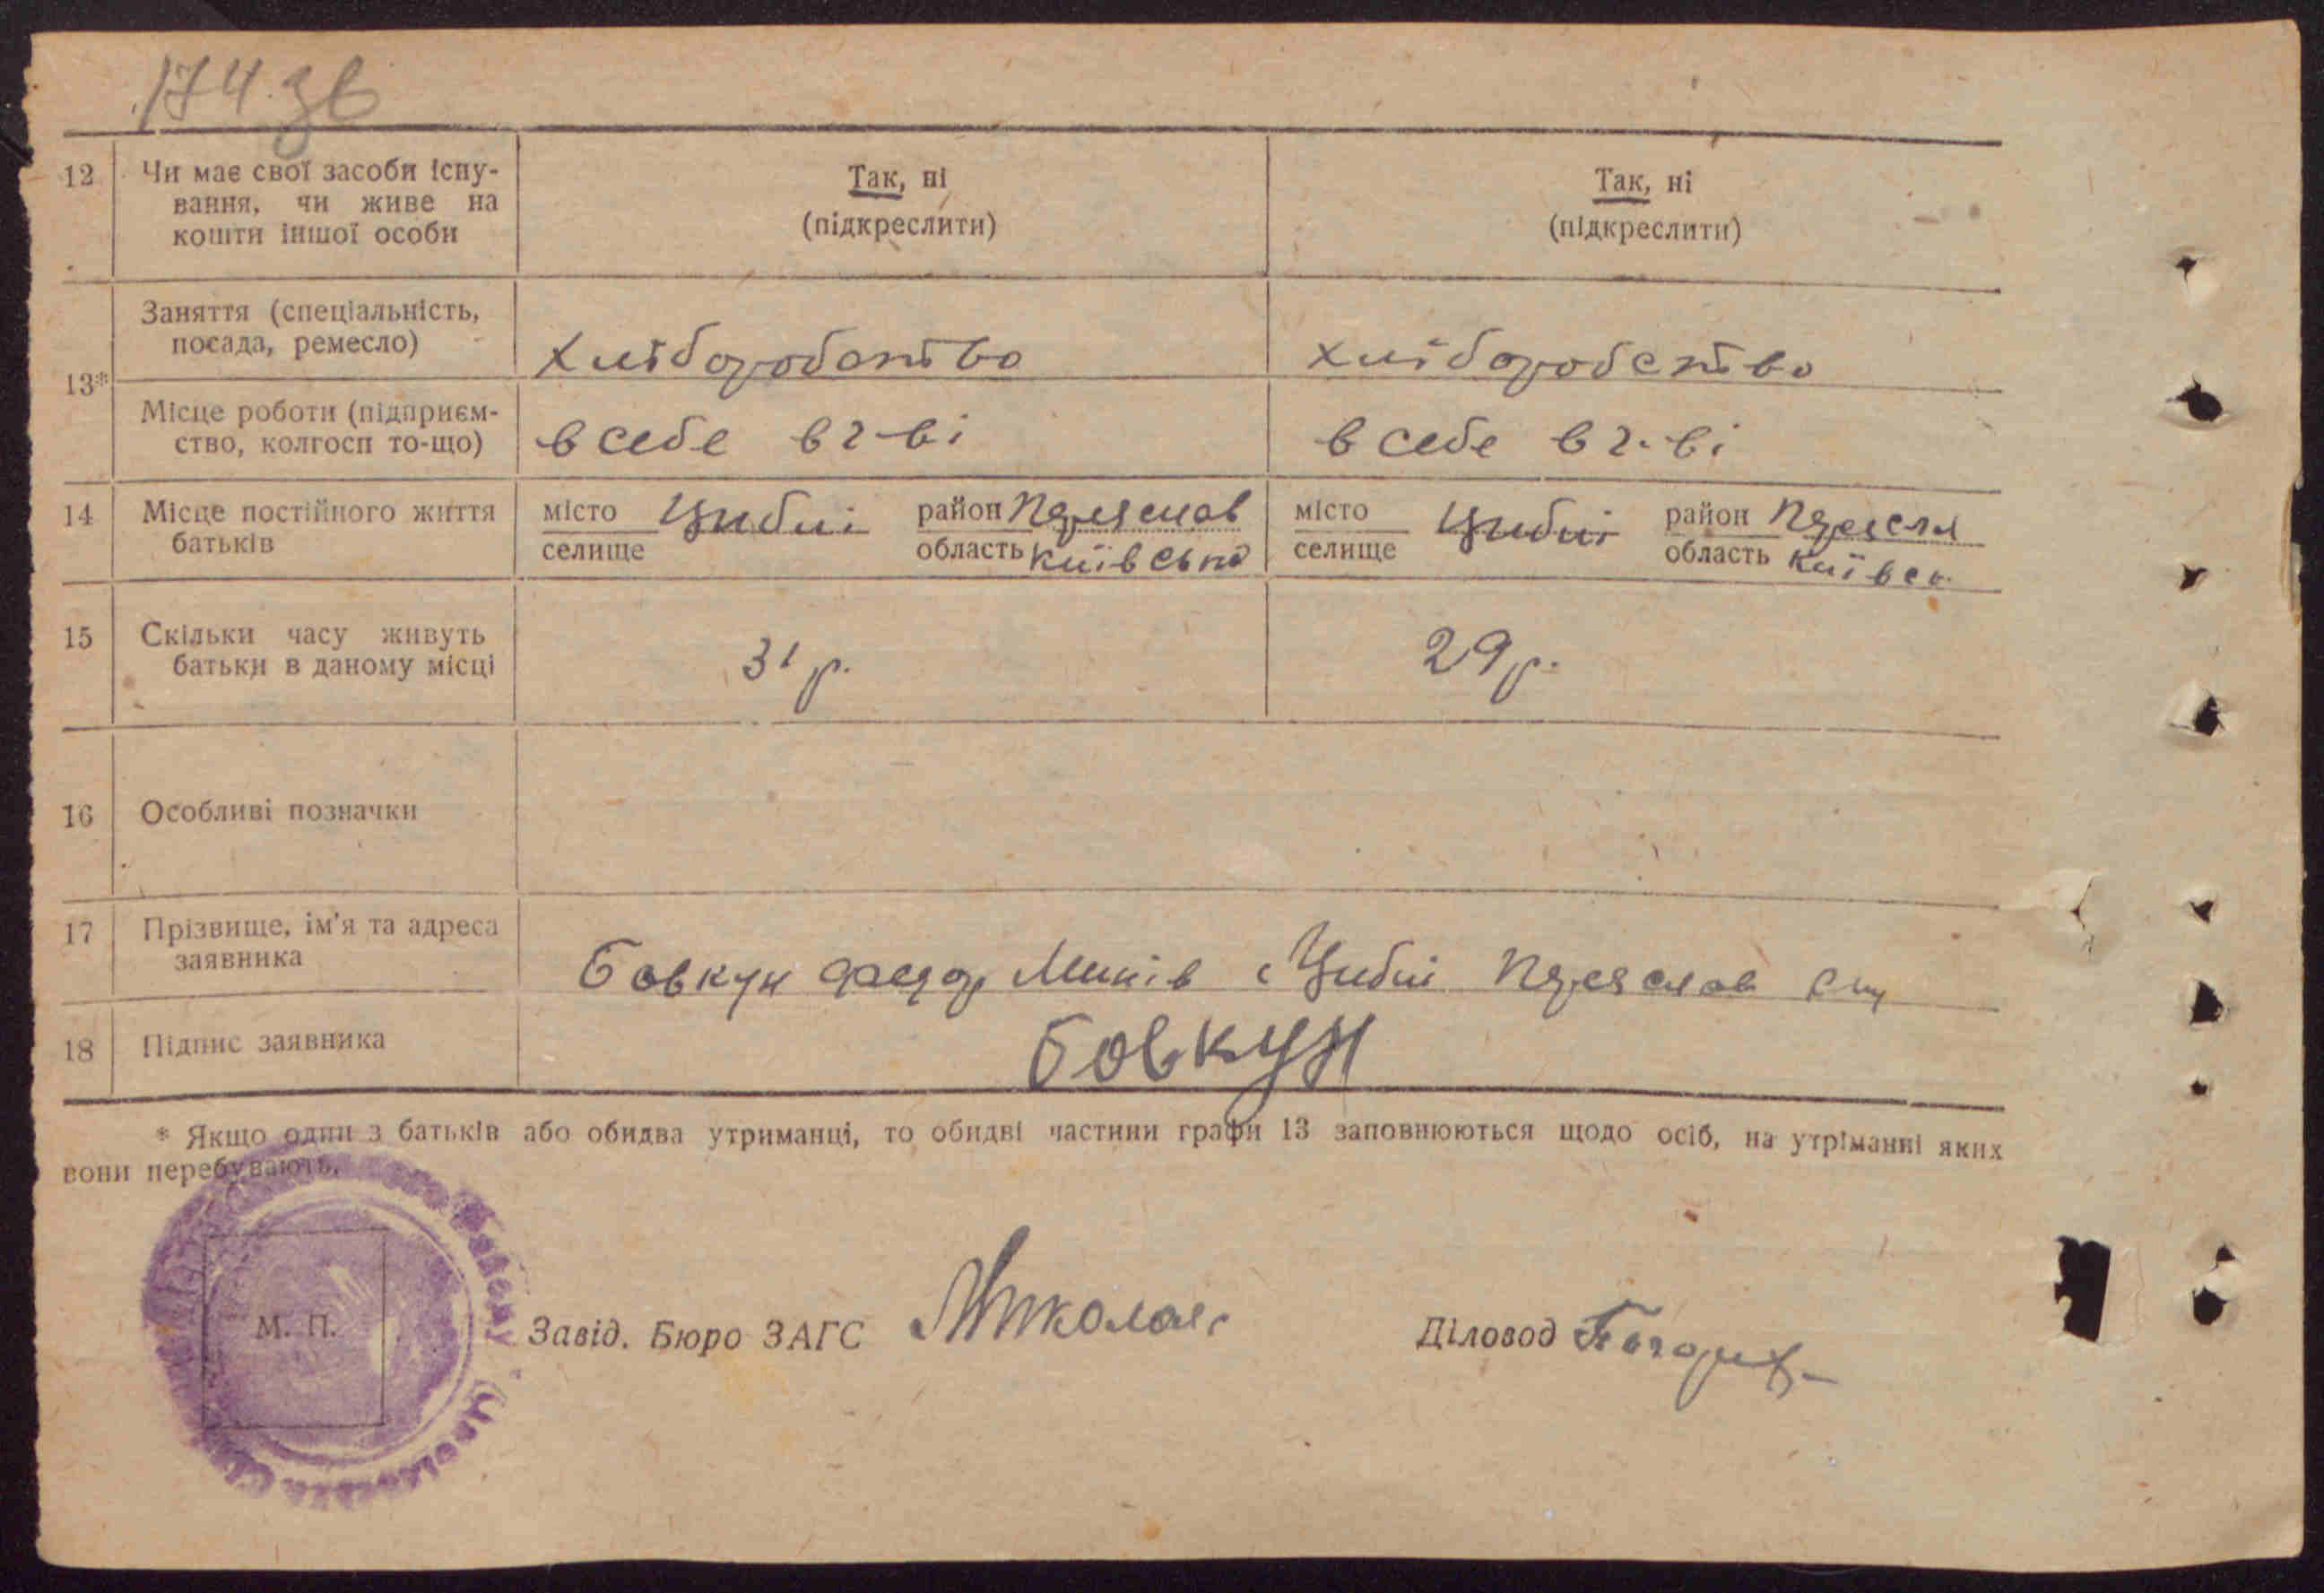 174 зв
12 Чи має свої засоби існу- Так, ні Так, ні
вання, чи живе на (підкреслити) (підкреслити)
кошти іншої особи
13* Заняття (спеціальність,
посада, ремесло) хліборобство хліборобство
Місце роботи (підприєм-
ство, колгосп то-що) в себе в г-ві в себе в г-ві
14 Місце постійного життя місто Циблі район Переяслав місто Циблі район Переясл
батьків селище область Київська селище область Київск
15 Скільки часу живуть
батьки в даному місці 31 р. 29 р.
16 Особливі позначки
17 Прізвище, ім'я та адреса
заявника Бовкун Федор Миків с Циблі Переяслав
18 Підпис заявника Бовкун
* Якщо один з батьків або обидва утриманці, то обидві частини графи 13 заповнюються щодо осіб, на утріманні яких
вони перебувають.
М. П.
Завід. Бюро ЗАГС Діловод